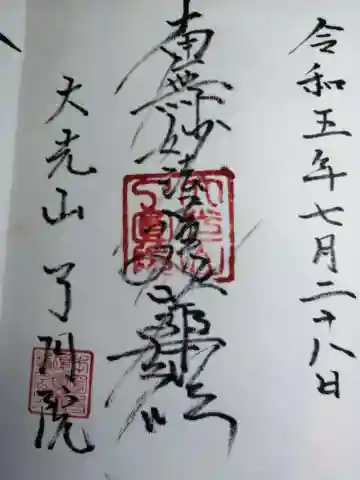 令和五年七月二十八日
南無妙法蓮華経
大光山 了円院